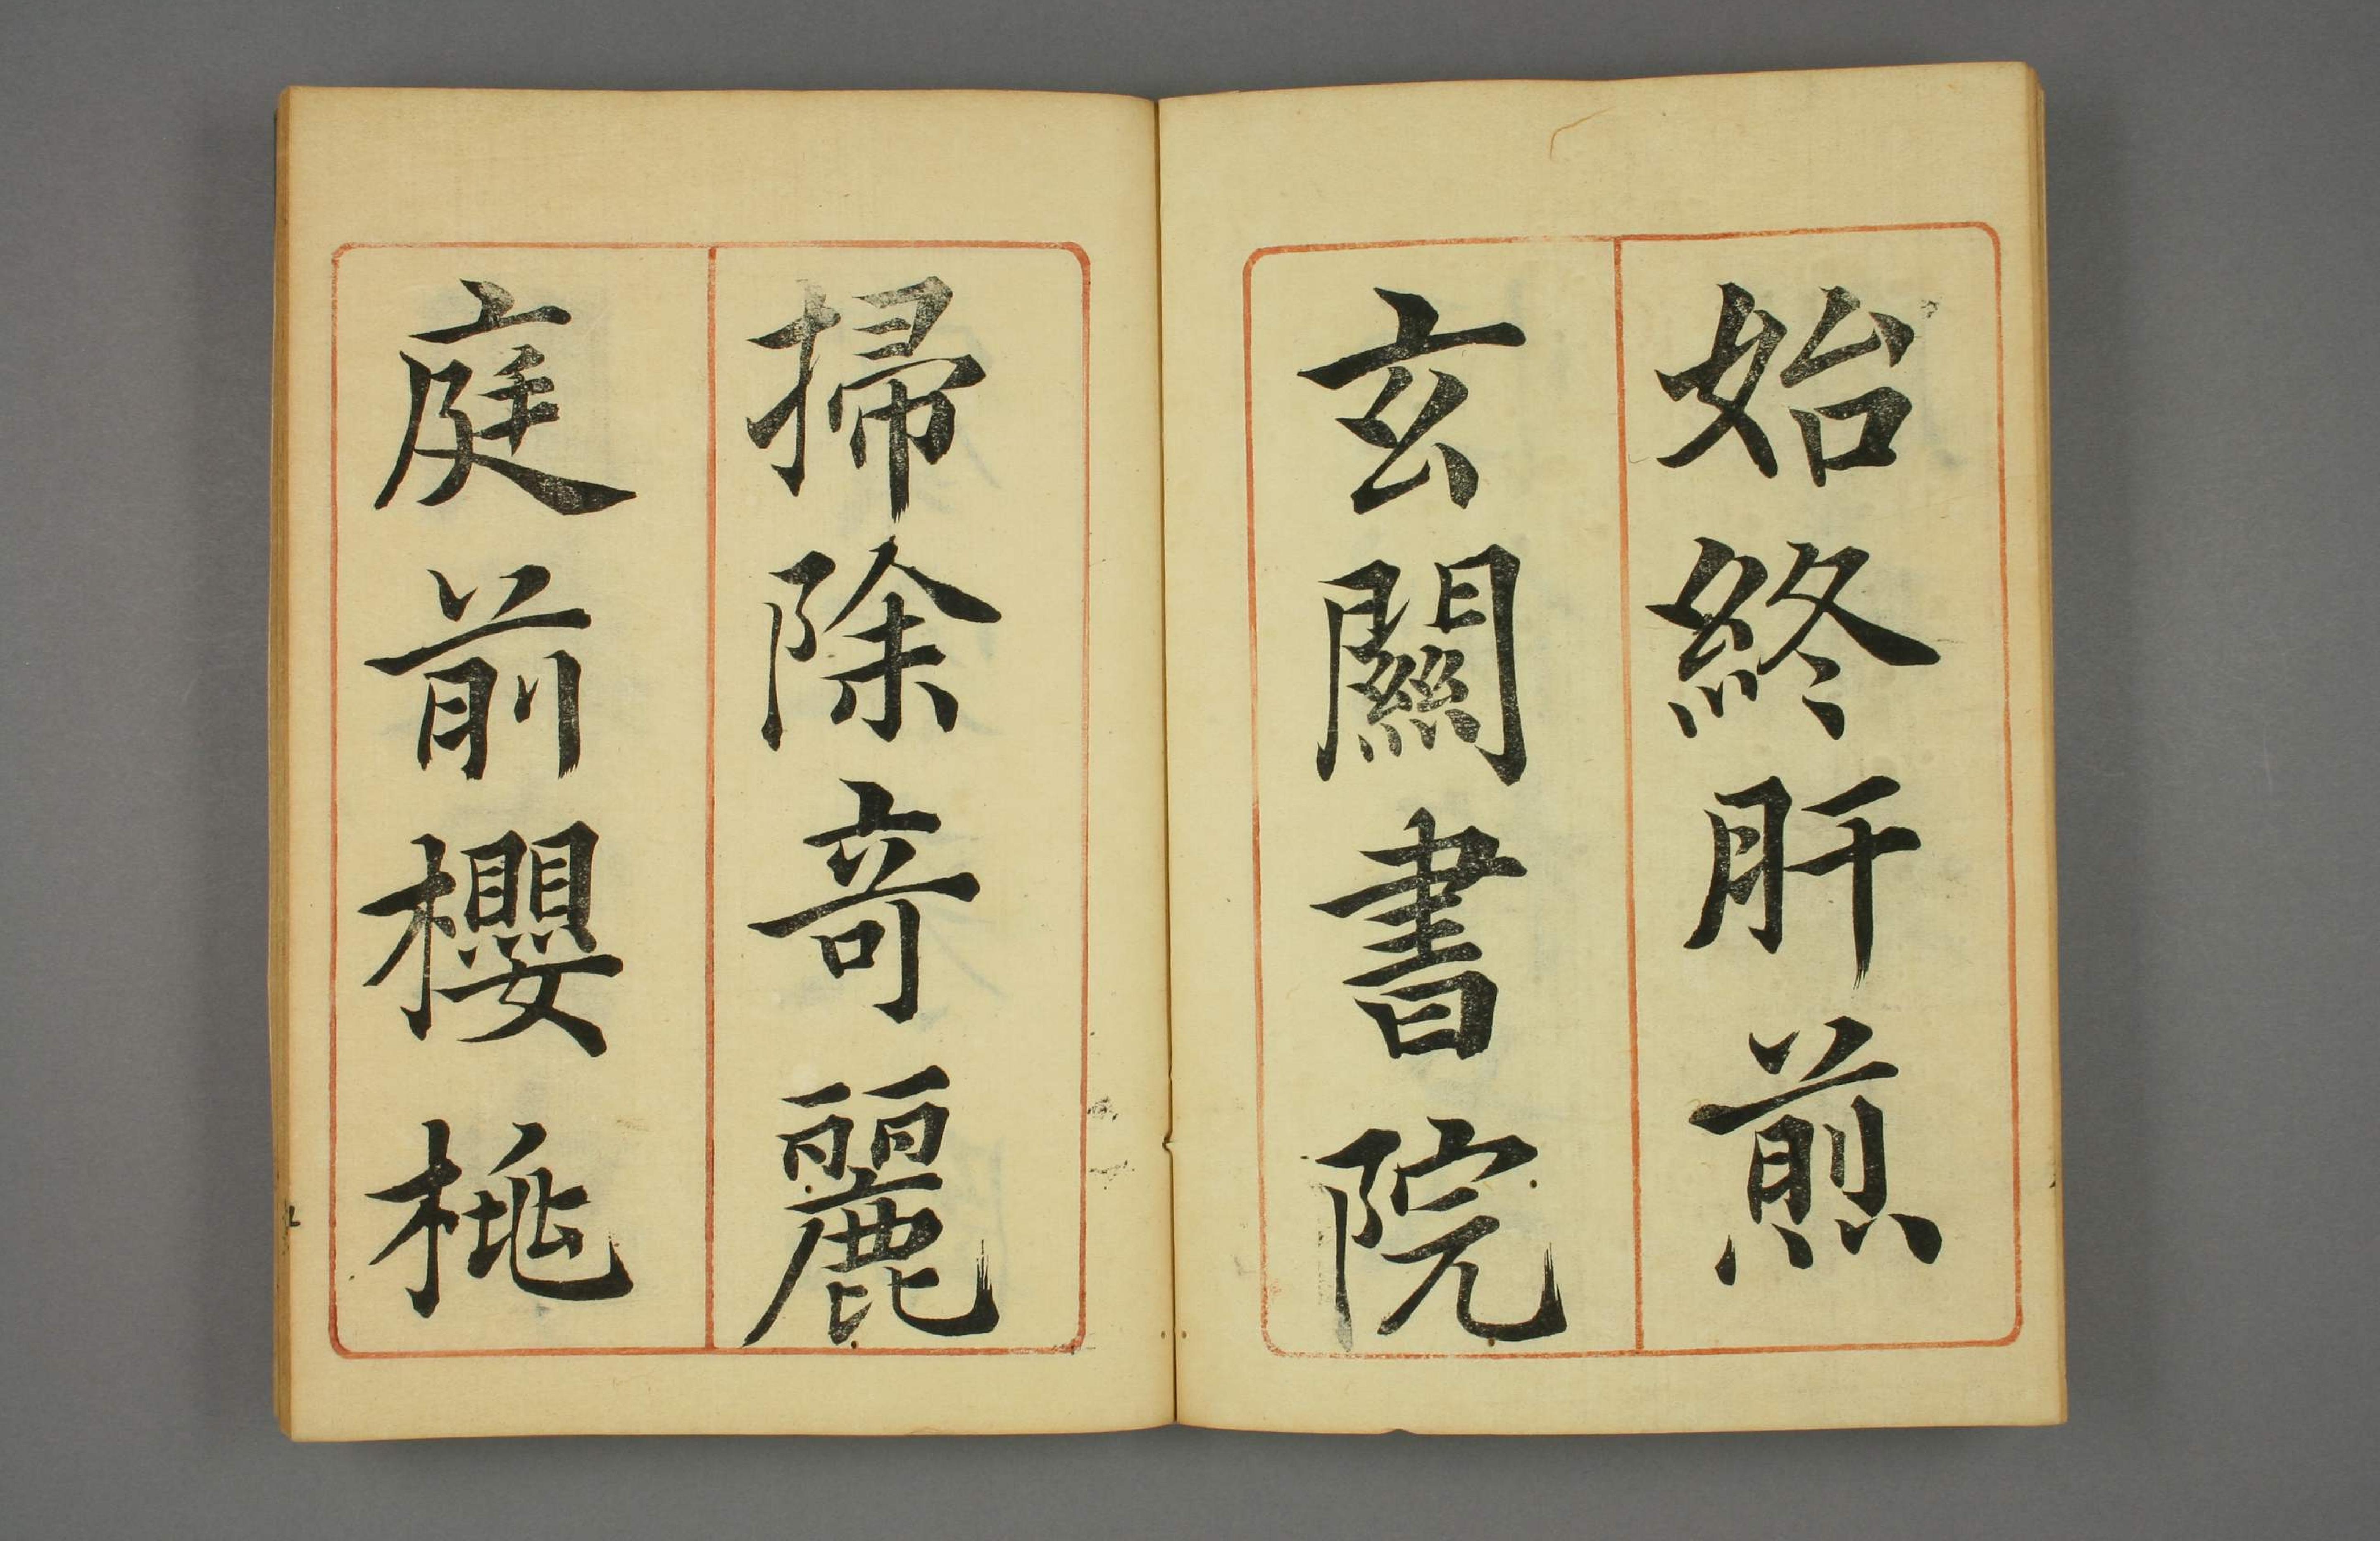 始終肝煎
玄關書院
掃除竒麗
庭前櫻桃